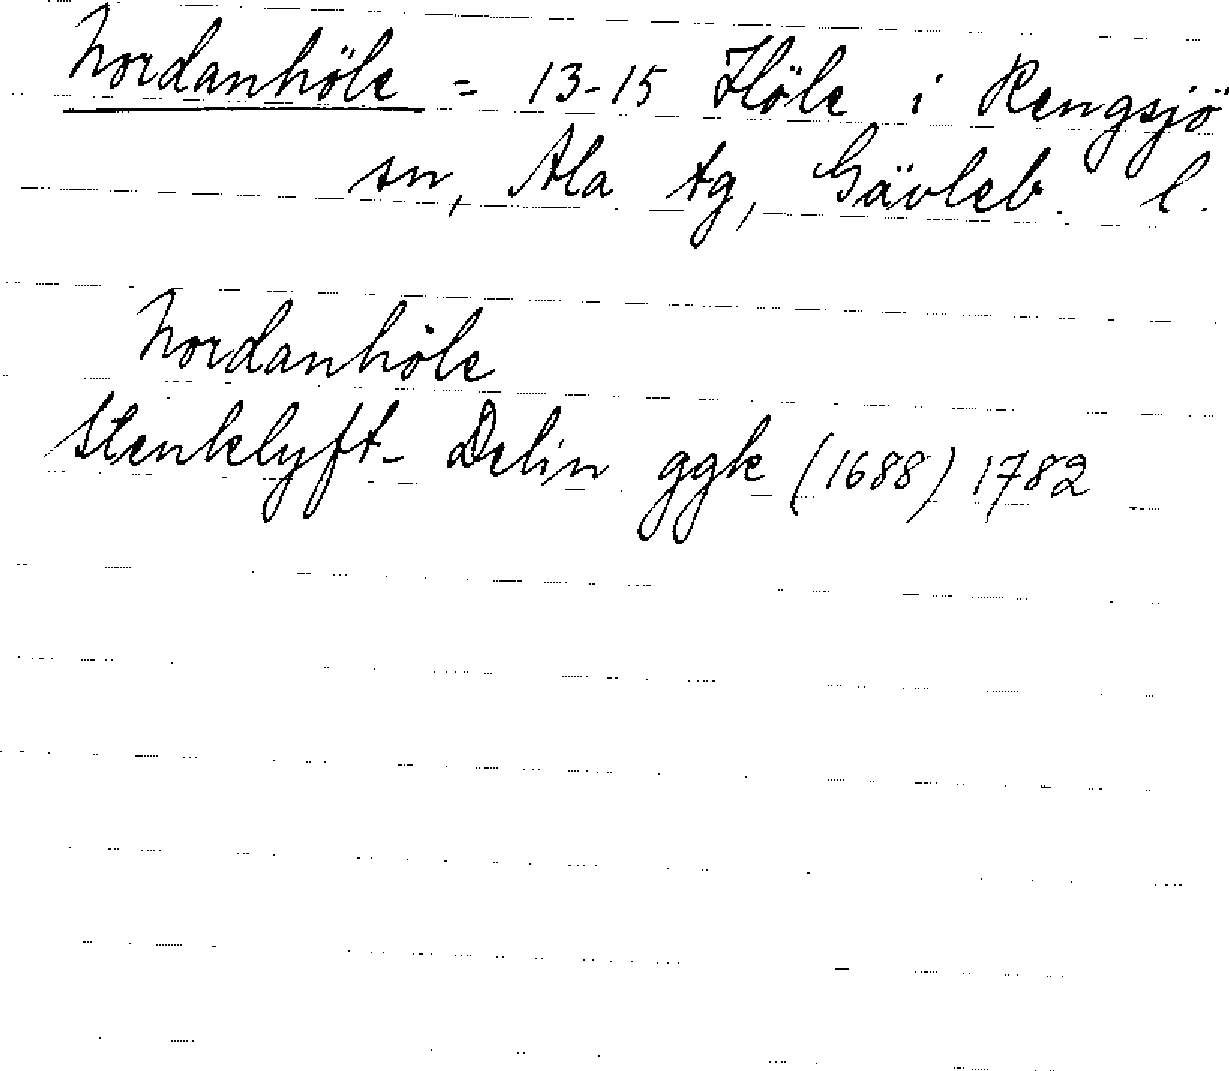 Nordanhöle = 13-15 Höle i Rengsjö
sn, Ala tg, Gävleb. l.
Nordanhöle
Stenklyft- Delin ggk (1688) 1782